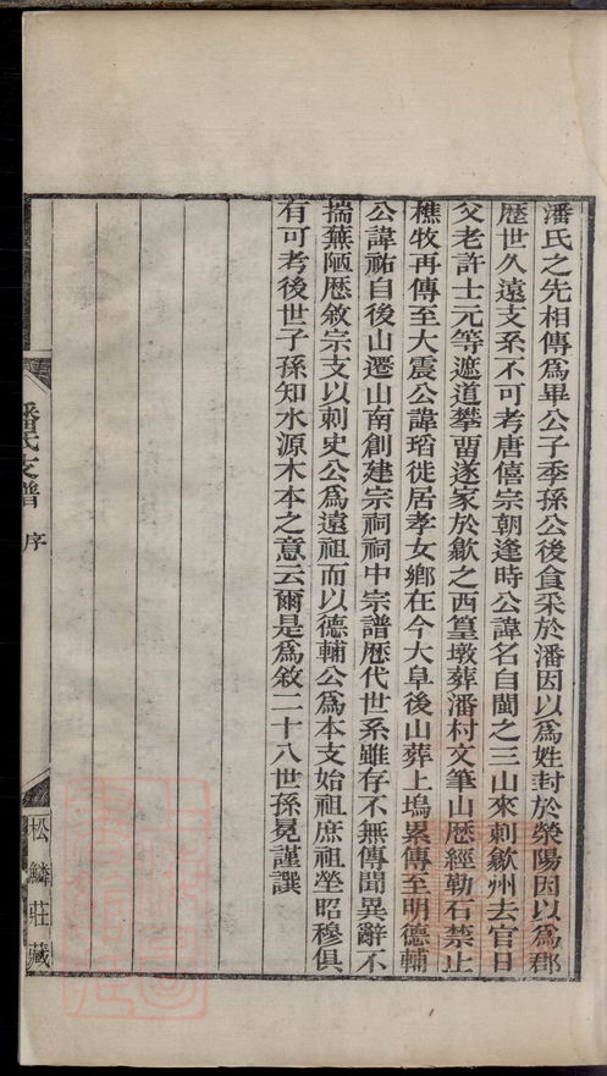 潘氏之先相傳爲畢公子季孫公後食采於潘因以爲姓封於滎陽因以爲郡
歷世久遠支系不可考唐僖宗朝逢時公諱名自閩之三山來刺歙州去官日
父老許士元等遮道攀畱遂家於歙之西篁墩葬潘村文筆山歷經勒石禁止
樵牧再傳至大震公諱瑫徙居孝女鄉在今大阜後山葬上塢累傳至明德輔
公諱祐自後山遷山南創建宗祠祠中宗譜歷代世系雖存不無傳聞異辭不
揣蕪陋歷敘宗支以刺史公爲遠祖而以德輔公爲本支始祖庶祖塋昭穆俱
有可考後世子孫知水源木本之意云爾是爲敘二十八世孫冕謹譔
潘氏支譜 序
松鱗莊藏